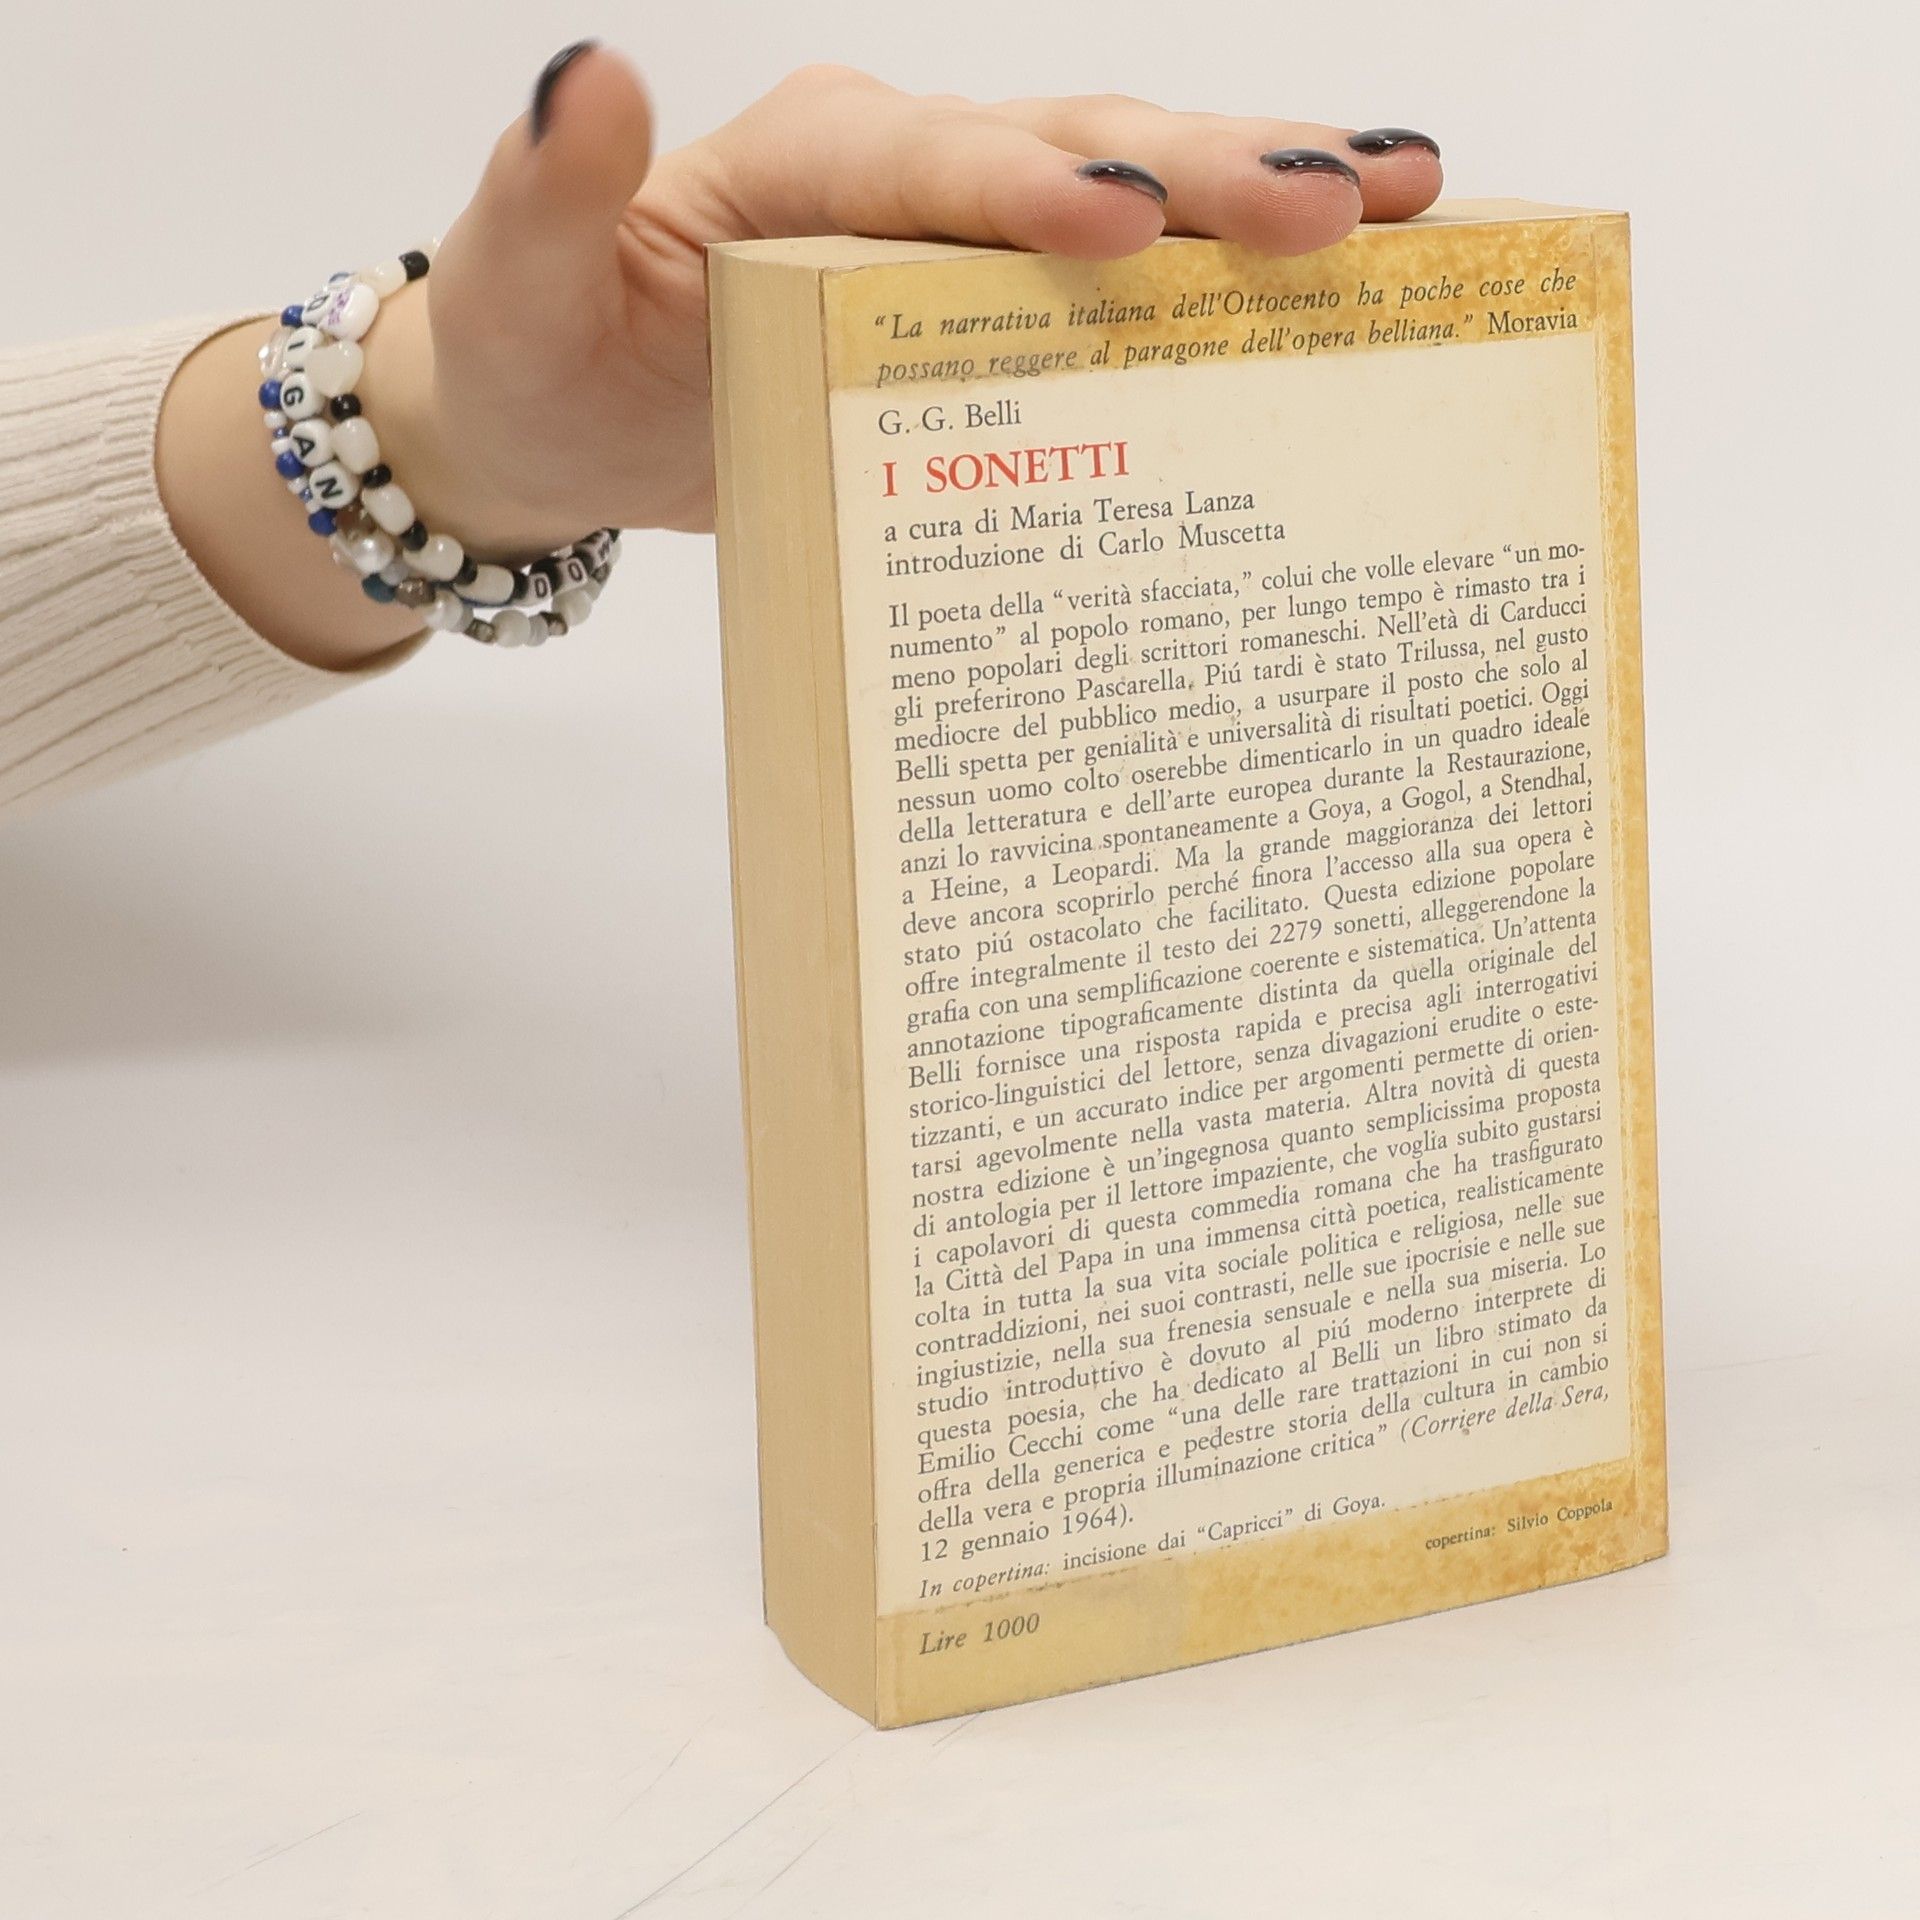 “La narrativa italiana dell’Ottocento ha poche cose che
possano reggere al paragone dell’opera belliana.” Moravia
G. G. Belli
I SONETTI
a cura di Maria Teresa Lanza
introduzione di Carlo Muscetta
Il poeta della “verità sfacciata,” colui che volle elevare “un mo-
numento” al popolo romano, per lungo tempo è rimasto tra i
meno popolari degli scrittori romaneschi. Nell’età di Carducci
gli preferirono Pascarella. Piú tardi è stato Trilussa, nel gusto
mediocre del pubblico medio, a usurpare il posto che solo al
Belli spetta per genialità e universalità di risultati poetici. Oggi
nessun uomo colto oserebbe dimenticarlo in un quadro ideale
della letteratura e dell’arte europea durante la Restaurazione,
anzi lo ravvicina spontaneamente a Goya, a Gogol, a Stendhal,
a Heine, a Leopardi. Ma la grande maggioranza dei lettori
deve ancora scoprirlo perché finora l’accesso alla sua opera è
stato piú ostacolato che facilitato. Questa edizione popolare
offre integralmente il testo dei 2279 sonetti, alleggerendone la
grafia con una semplificazione coerente e sistematica. Un’attenta
annotazione tipograficamente distinta da quella originale del
Belli fornisce una risposta rapida e precisa agli interrogativi
storico-linguistici del lettore, senza divagazioni erudite o este-
tizzanti, e un accurato indice per argomenti permette di orien-
tarsi agevolmente nella vasta materia. Altra novità di questa
nostra edizione è un’ingegnosa quanto semplicissima proposta
di antologia per il lettore impaziente, che voglia subito gustarsi
i capolavori di questa commedia romana che ha trasfigurato
la Città del Papa in una immensa città poetica, realisticamente
colta in tutta la sua vita sociale politica e religiosa, nelle sue
contraddizioni, nei suoi contrasti, nelle sue ipocrisie e nelle sue
ingiustizie, nella sua frenesia sensuale e nella sua miseria. Lo
studio introduttivo è dovuto al piú moderno interprete di
questa poesia, che ha dedicato al Belli un libro stimato da
Emilio Cecchi come “una delle rare trattazioni in cui non si
offra della generica e pedestre storia della cultura in cambio
della vera e propria illuminazione critica” (Corriere della Sera,
12 gennaio 1964).
In copertina: incisione dai “Capricci” di Goya.
copertina: Silvio Coppola
Lire 1000
I G A N